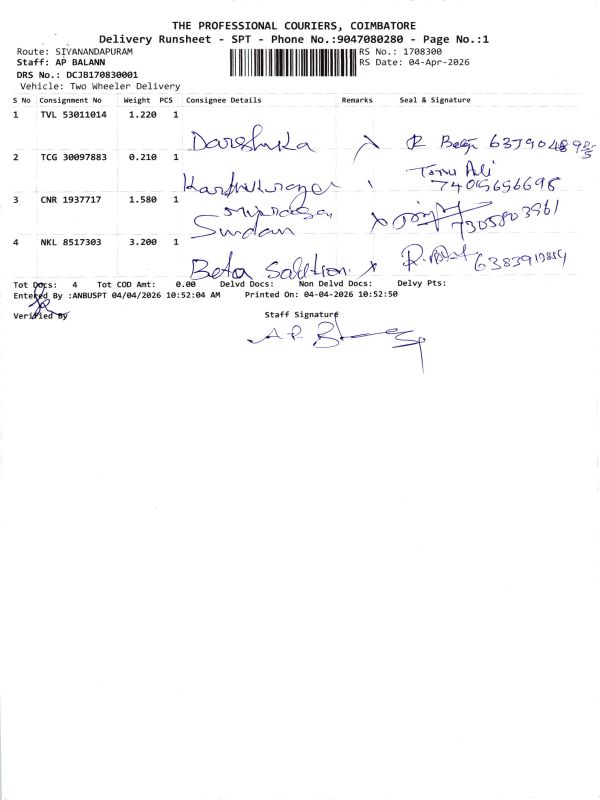 THE PROFESSIONAL COURIERS, COIMBATORE
Delivery Runsheet - SPT - Phone No.:9047080280 - Page No.:1
Route: SIVANANDAPURAM
RS No.: 1708300
Staff: AP BALANN
RS Date: 04-Apr-2026
DRS No.: DCJB170830001
Vehicle: Two Wheeler Delivery
S No Consignment No Weight PCS Consignee Details Remarks Seal & Signature
1 TVL 53011014 1.220 1
Darshika
2 TCG 30097883 0.210 1
7401565 6698
3 CNR 1937717 1.580 1
7305803961
4 NKL 8517303 3.200 1
Beta
Tot Docs: 4 Tot COD Amt: 0.00 Delvd Docs: Non Delvd Docs: Delvy Pts:
Entered By :ANBUSPT 04/04/2026 10:52:04 AM Printed On: 04-04-2026 10:52:50
Verified By Staff Signature